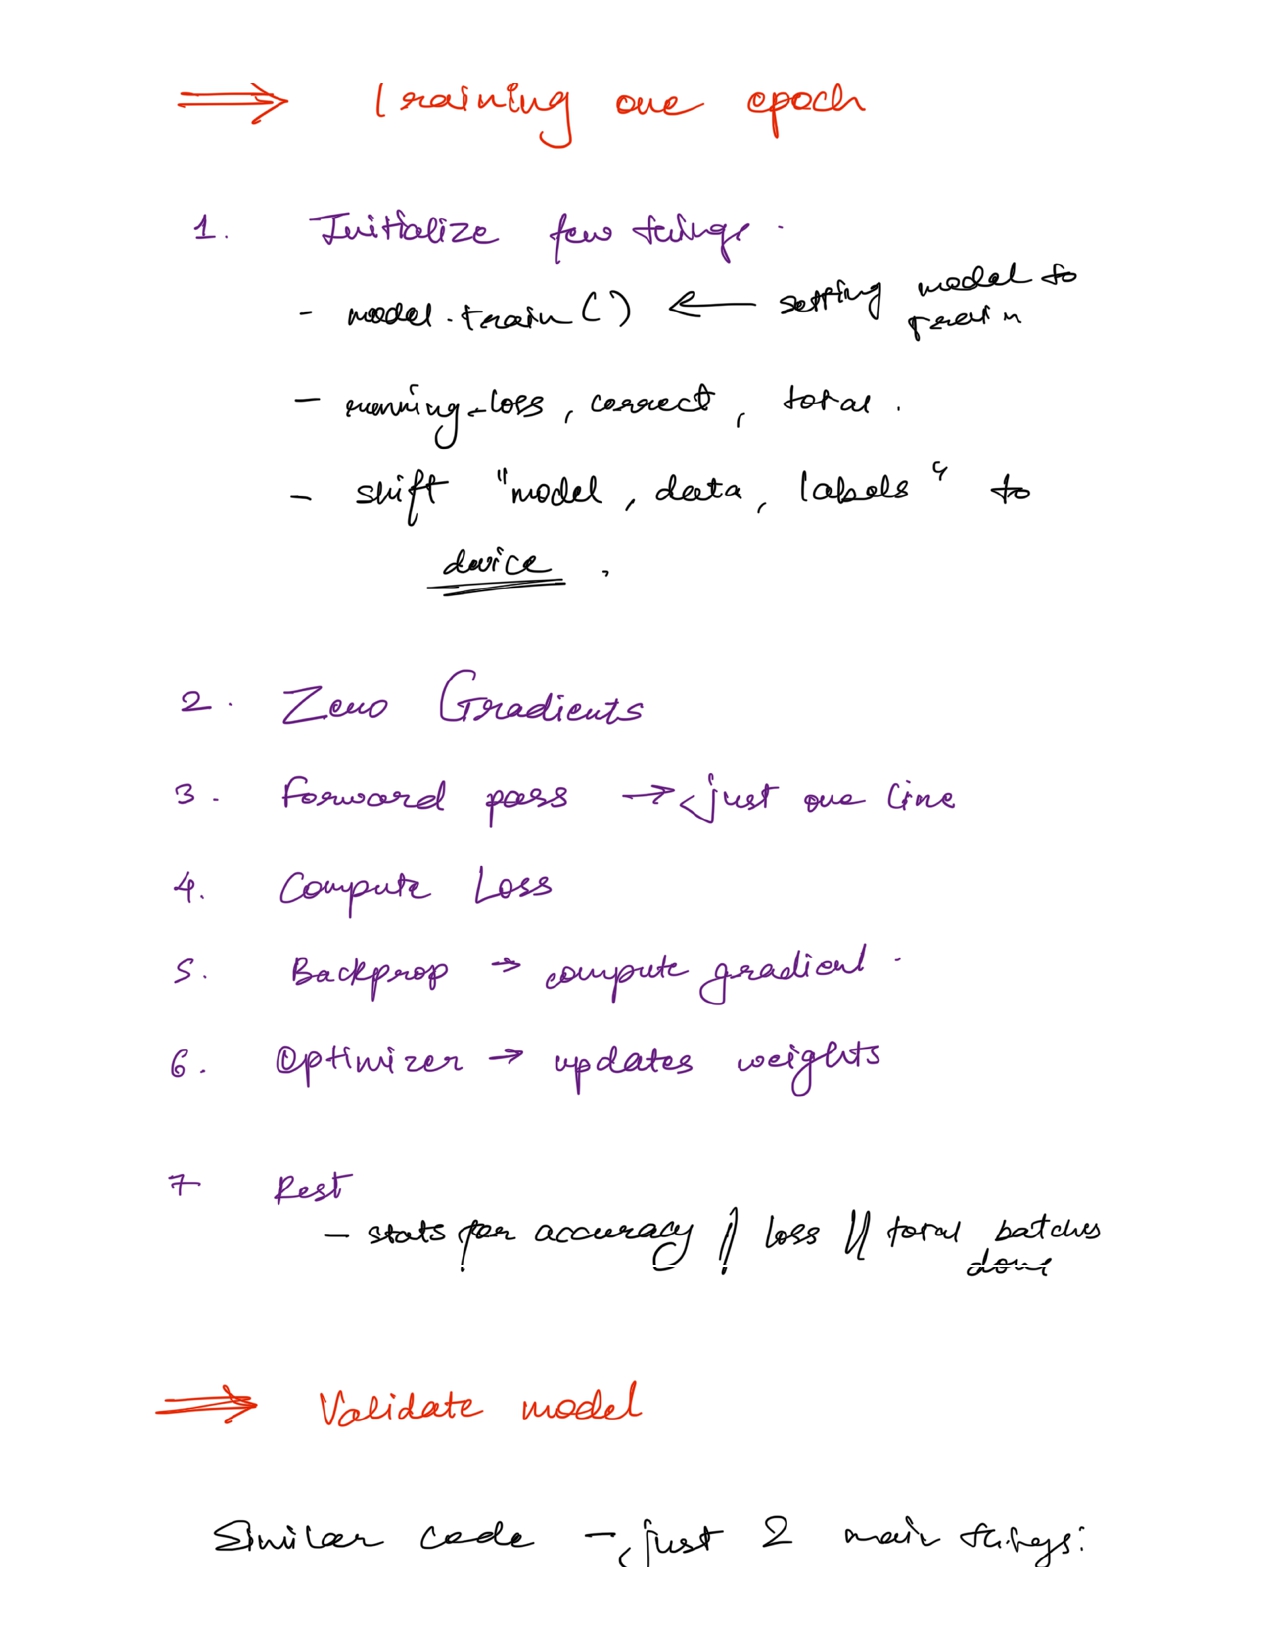 ⟹ Training one epoch
1. Initialize few things.
- model.train() ← setting model to train
- running_loss, correct, total.
- shift "model, data, labels" to
device.
2. Zero Gradients
3. Forward pass → just one line
4. Compute Loss
5. Backprop → compute gradient.
6. Optimizer → updates weights
7 Rest
- stats for accuracy || loss || total batches
done
⟹ Validate model
Similar code - just 2 main things: